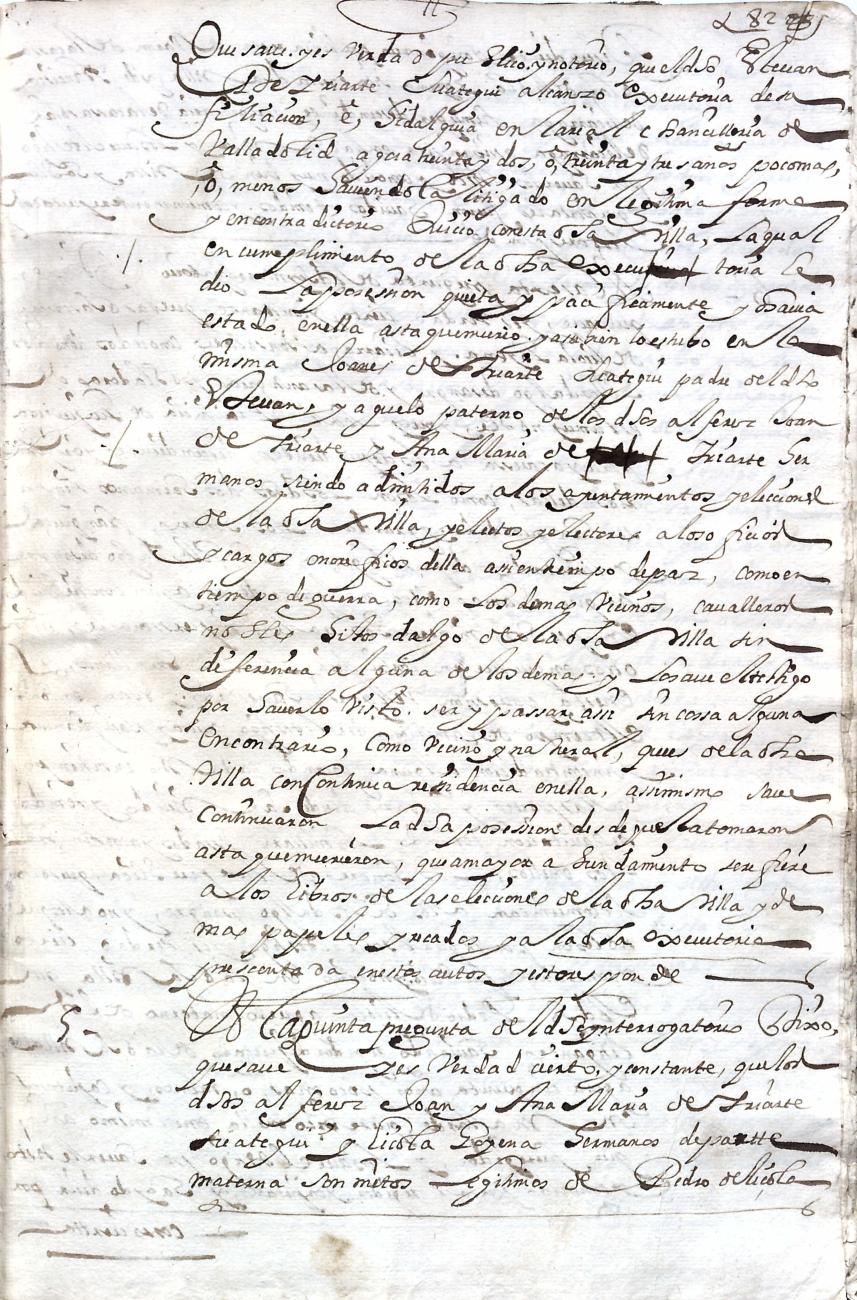 Que save. y es Verdad y pu Blico, y notorio, que el dho Estevan
de Yriarte Ycategui alcanzo executoria de su
filiacion, e, Hidalguia en la rial chancilleria de
Valladolid agora treinta y dos, o, treinta y tres anos poco mas,
o, menos haviendola litigado en legitima forma
y en contradictorio Juicio con esta dha Villa, la qual
en cumplimiento de la dha execu toria le
dio La posesion quieta y pacificamente y havia
estado en ella asta que murio. y asi bien lo estubo en la
misma Joanes de Yriarte Ycategui padre del dho
Estevan, y aguelo paterno, de los dhos alferez Joan
de Yriarte y Ana Maria de Yriarte Her
manos siendo admitidos a los ayuntamientos y elecciones
de la dha Villa, y electos y electores a los oficios
y cargos onorificos della asi en tiempo de paz, como en
tiempo de guerra, como los demas Vecinos, cavalleros
nobles Hijos dalgo de la dha Villa sin
diferencia alguna de los demas. y lo save el testigo
por haverlo Visto. ser y passar asi sin cossa alguna
en contrario, como Vecino y natural, que es de la dha
Villa con continua residencia en ella, assimismo save
continuaron La dha posesion desde que la tomaron
asta que murieron, que a mayor a bundamiento se refiere
a los libros de las elecciones de la dha Villa y de
mas papeles y recados y a la dha executoria
pressentada en estos autos y esto responde
5. A la quinta pregunta del dho ynterrogatorio Dixo,
que save y es Verdad cierto, y constante, que los
dhos alferez Joan y Ana Maria de Yriarte
Ycategui y licola Goyena Hermanos de partte
materna son nietos legitimos de Pedro de licola